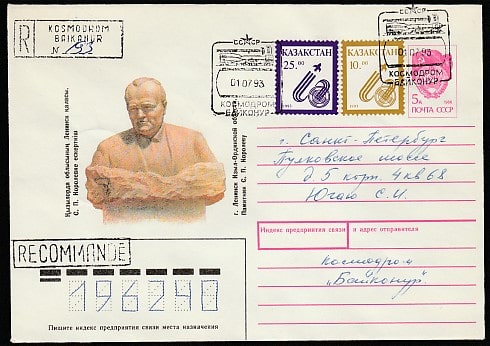 KOSMODROM
BAIKONUR
R
№ 193
СССР
01 07 93
КОСМОДРОМ
БАЙКОНУР
КАЗАКСТАН
25.00
1993
КАЗАКСТАН
10.00
1993
СССР
01 07 93
КОСМОДРОМ
БАЙКОНУР
5к
1988
ПОЧТА СССР
Қызылорда облысының Ленинск қаласы.
С. П. Королевке ескерткіш
г. Ленинск Кзыл-Ординской области
Памятник С. П. Королеву
г. Санкт-Петербург
Пулковское шоссе
д 5 корп. 4 кв 68
Югаю С. И.
Индекс предприятия связи и адрес отправителя
космодром
"Байконур"
RECOMMANDÉ
196240
Пишите индекс предприятия связи места назначения